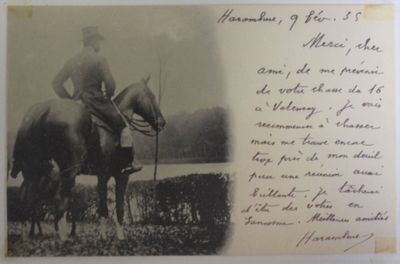 Harambure, 9 fév. 35
Merci, cher
ami, de me prévenir
de votre chasse du 16
à Valençay. Je vais
recommencer à chasser
mais me trouve encore
trop près de mon deuil
pour une réunion aussi
brillante. Je tâcherai
d'être des vôtres en
Meilleures amitiés
Harambure